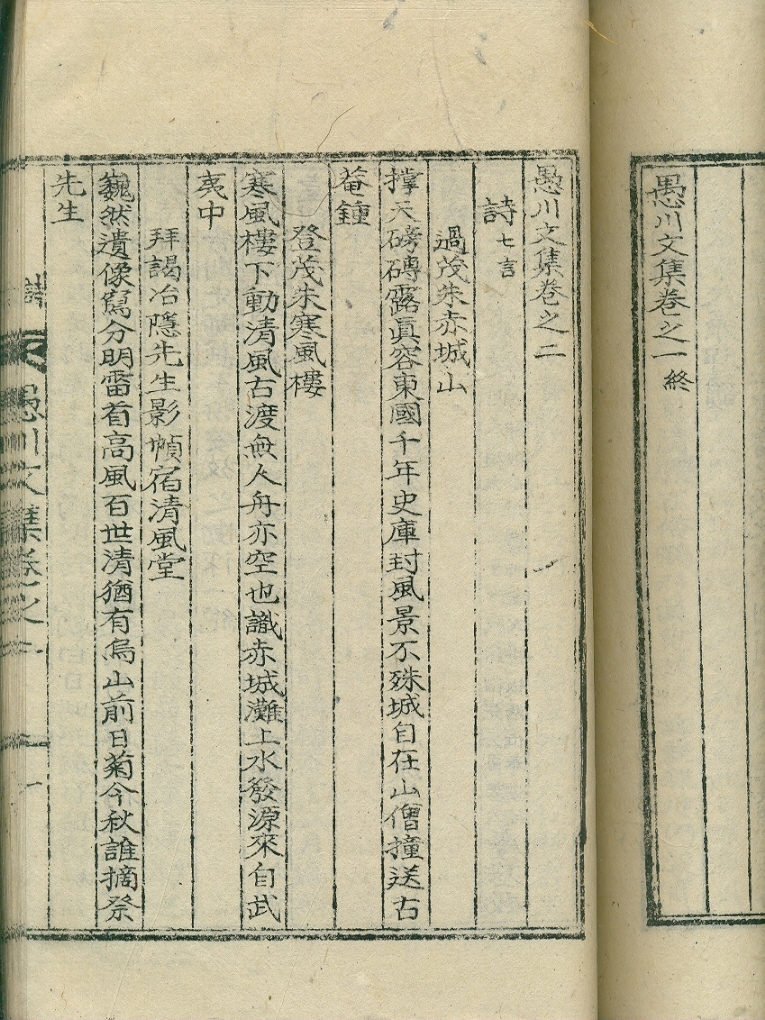 愚川文集卷之一終
愚川文集卷之二
詩七言
過茂朱赤城山
撑天磅礴露眞容東國千年史庫封風景不殊城自在山僧撞送古
菴鍾
登茂朱寒風樓
寒風樓下動清風古渡無人舟亦空也識赤城灘上水發源來自武
夷中
拜謁冶隱先生影幀宿清風堂
巍然遺像寫分明雷首高風百世清猶有烏山前日菊今秋誰摘祭
先生
愚川文集卷之二